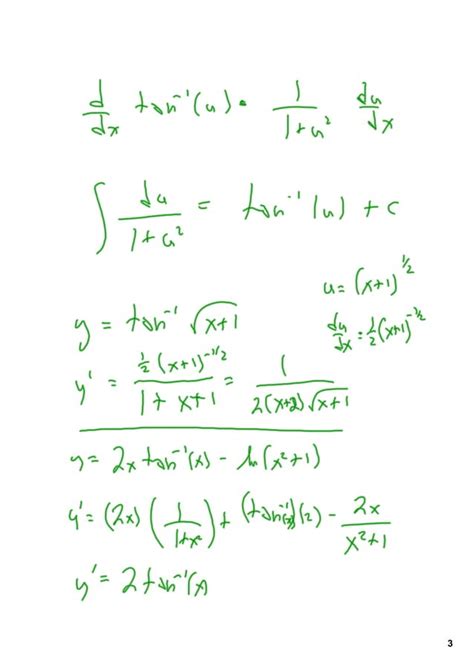 d/dx tan⁻¹(u) = 1/(1+u²) du/dx
∫ du/(1+u²) = tan⁻¹(u) + c
u = (x+1)^(1/2)
y = tan⁻¹ √(x+1)
du/dx = ½(x+1)^(-1/2)
y' = ½(x+1)^(-1/2) / (1+x+1) = 1/(2(x+2)√(x+1))
y = 2x tan⁻¹(x) - ln(x²+1)
y' = (2x)(1/(1+x²)) + (tan⁻¹(x))(2) - 2x/(x²+1)
y' = 2tan⁻¹(x)
3